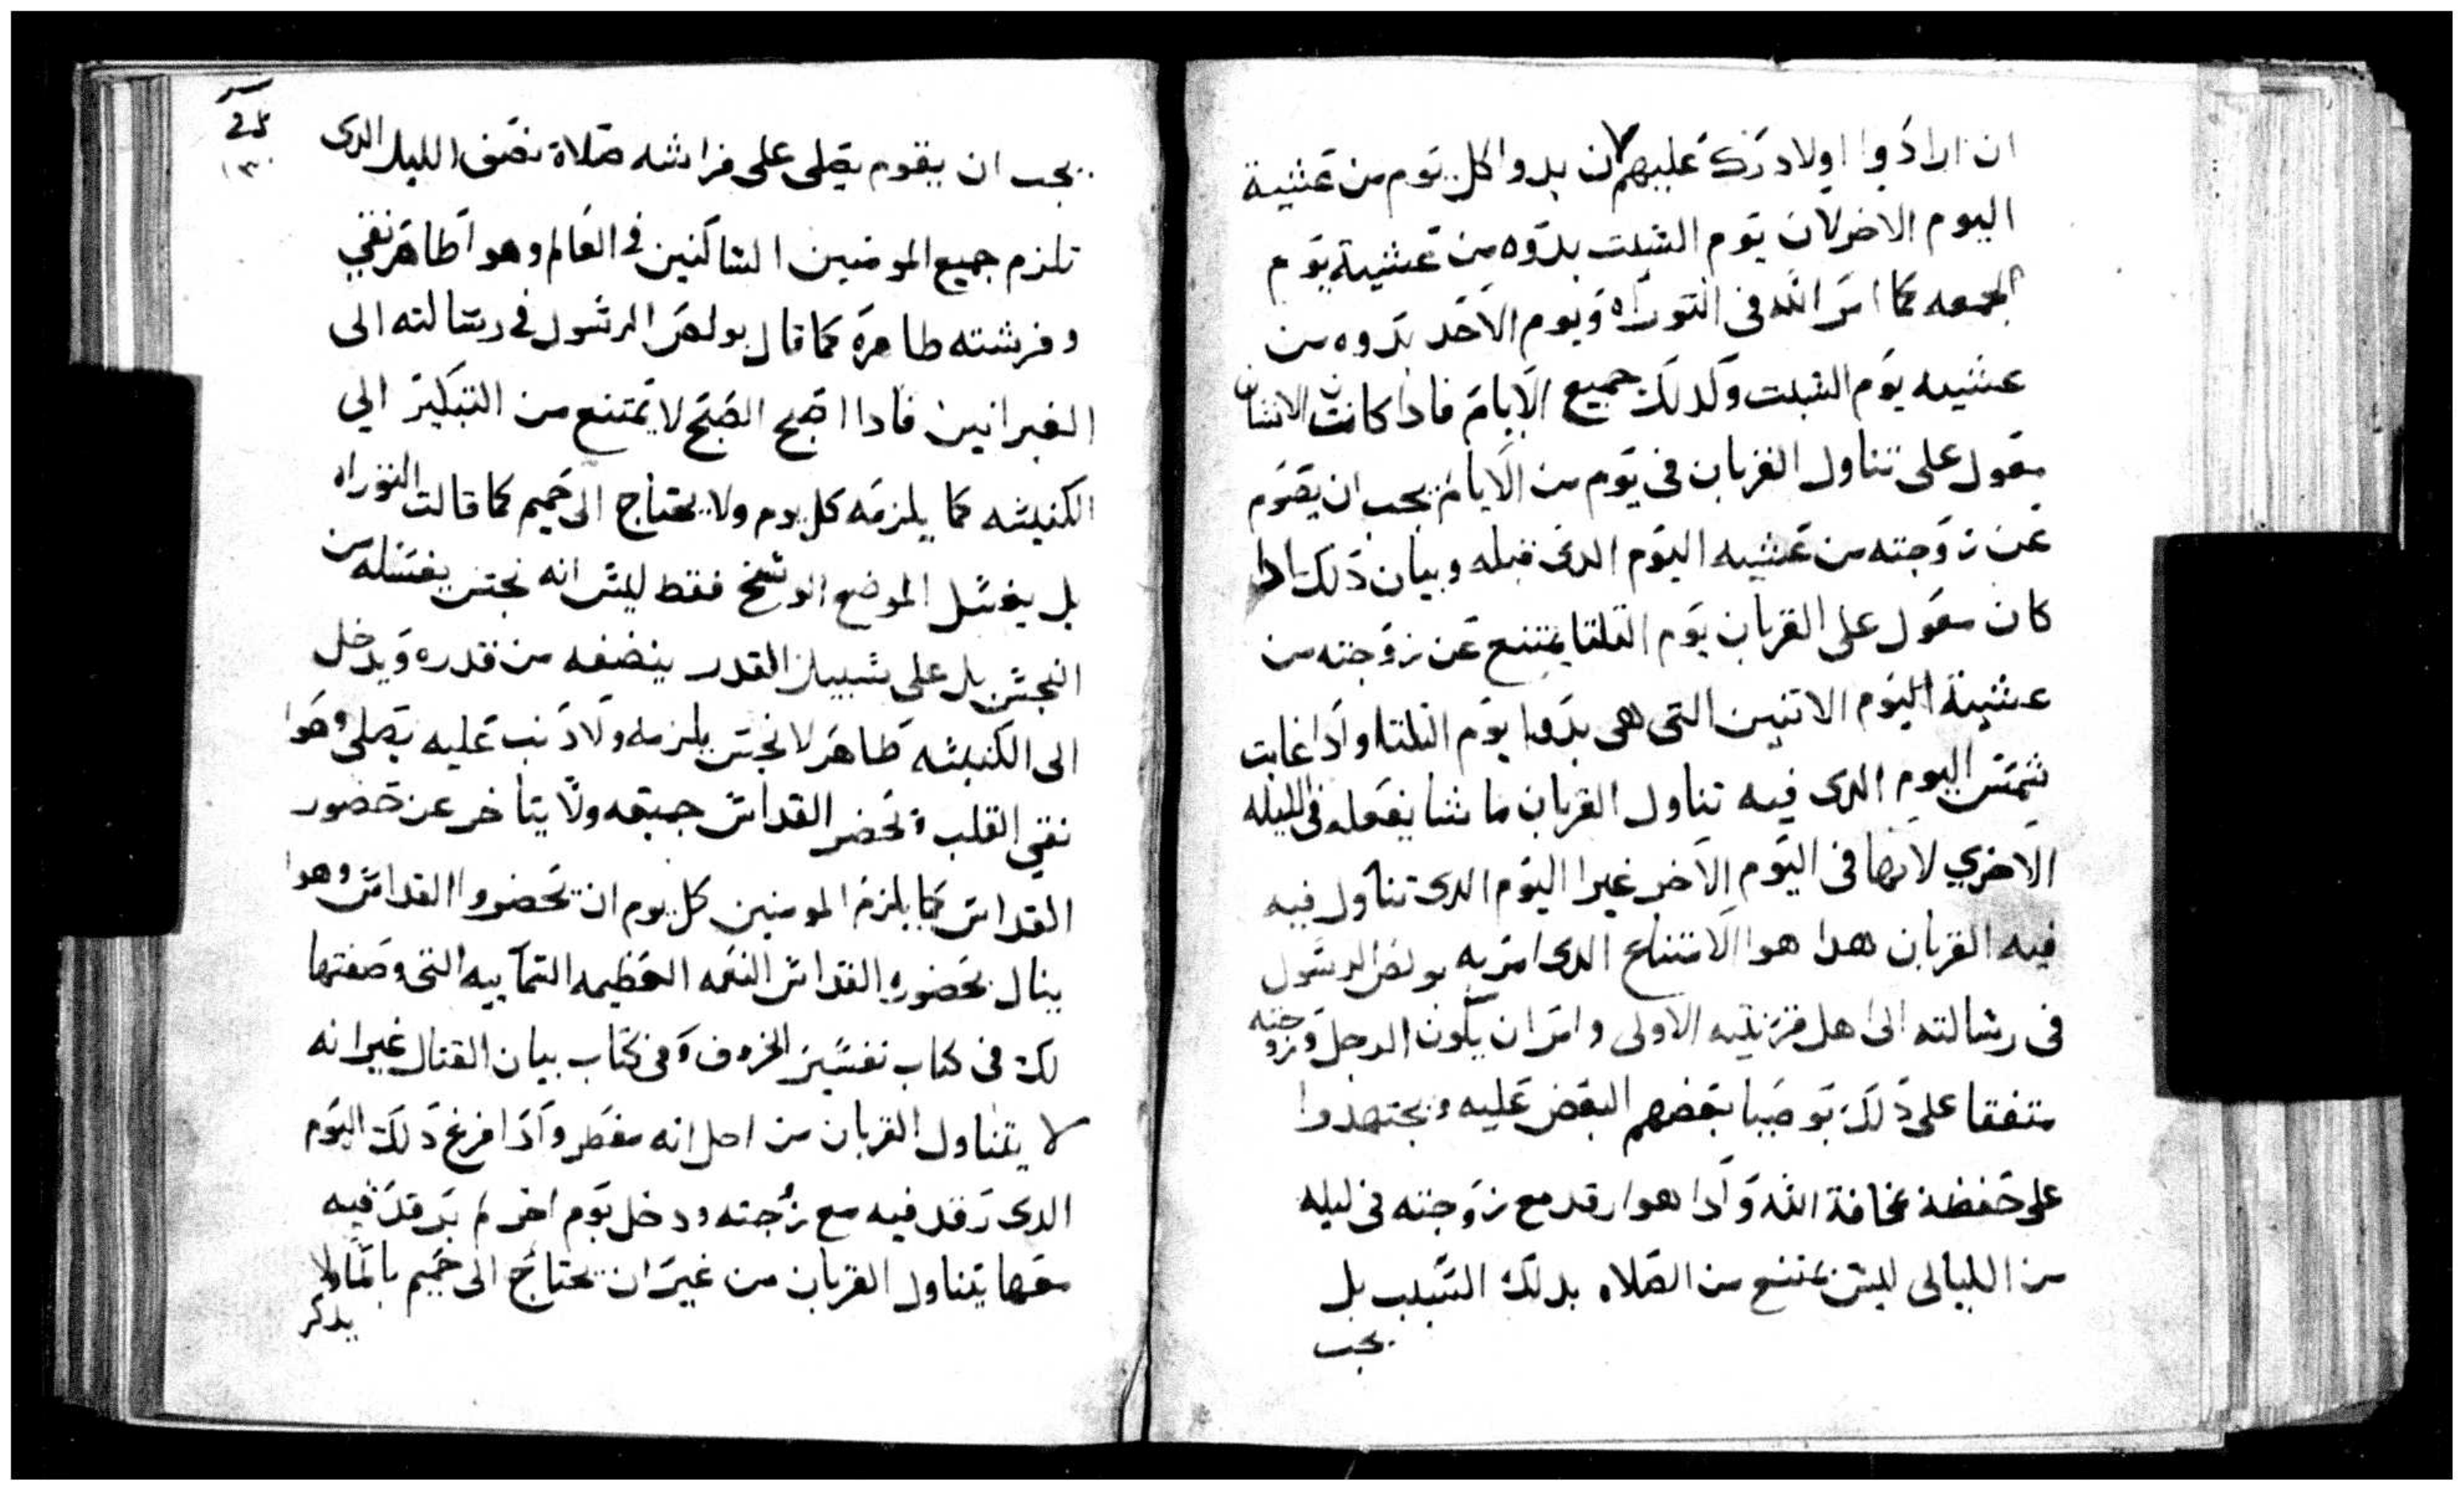 ان ارادوا اولاد ردك عليهم لان بدوا كل يوم من عشية
اليوم الاخر لان يوم السبت بدوه من عشية يوم
الجمعه كما امر الله في التوراه ويوم الاحد بدوه من
عشيه يوم السبت وكدلك جميع الايام فادا كانت الانسان
معول على تناول القربان في يوم من الايام يجب ان يصوم
عن زوجته من عشيه اليوم الدى قبله وبيان دلك ادا
كان معول على القربان يوم التلتا يمتنع عن زوجته من
عشية اليوم الاتنين التى هى بدوا يوم التلتا وادا غابت
شمس اليوم الدى فيه تناول القربان ما شا يفعله في الليله
الاخري لانها فى اليوم الاخر غير اليوم الدى تناول فيه
فيه القربان هدا هوا الامتناع الدى امر به بولص الرسول
فى رسالته الى اهل قرنتيه الاولى وامر ان يكون الرجل وزوجته
متفقا على دلك يوصيا بعضهم البعض عليه ويجتهدوا
على حفظة مخافة الله وادا هوا رقد مع زوجته فى ليله
من الليالى ليس يمتنع من الصلاه بدلك السبب بل
يجب
يجب ان يقوم يصلى على فراشه صلاة نصف الليل الدى
تلزم جميع المومنين الساكنين في العالم وهوا طاهر نقي
وفرشته طاهره كما قال بولص الرسول في رسالته الى
العبرانيين فادا اصبح الصبح لا يمتنع من التبكير الي
الكنيسه كما يلزمه كل يوم ولا يحتاج الى حميم كما قالت التوراه
بل يغسل الموضع الوسخ فقط ليس انه نجس يغسله من
النجس بل على سبيل القدر ينضفه من قدره ويدخل
الى الكنيسه طاهر لا نجس يلزمه ولا دنب عليه يصلى وهوا
نقي القلب ويحضر القداس جميعه ولا يتاخر عن حضور
القداس كما يلزم المومنين كل يوم ان يحضروا القداس وهوا
ينال بحضوره القداس النعمه العظيمه السماييه التى وصفتها
لك فى كتاب تفسير الحروف وفى كتاب بيان القتال غير انه
لا يتناول القربان من اجل انه مفطر وادا فرغ دلك اليوم
الدى رقد فيه مع زوجته ودخل يوم اخر لم يرقد فيه
معها يتناول القربان من غير ان يحتاج الى حميم بالما ولا
يدكر